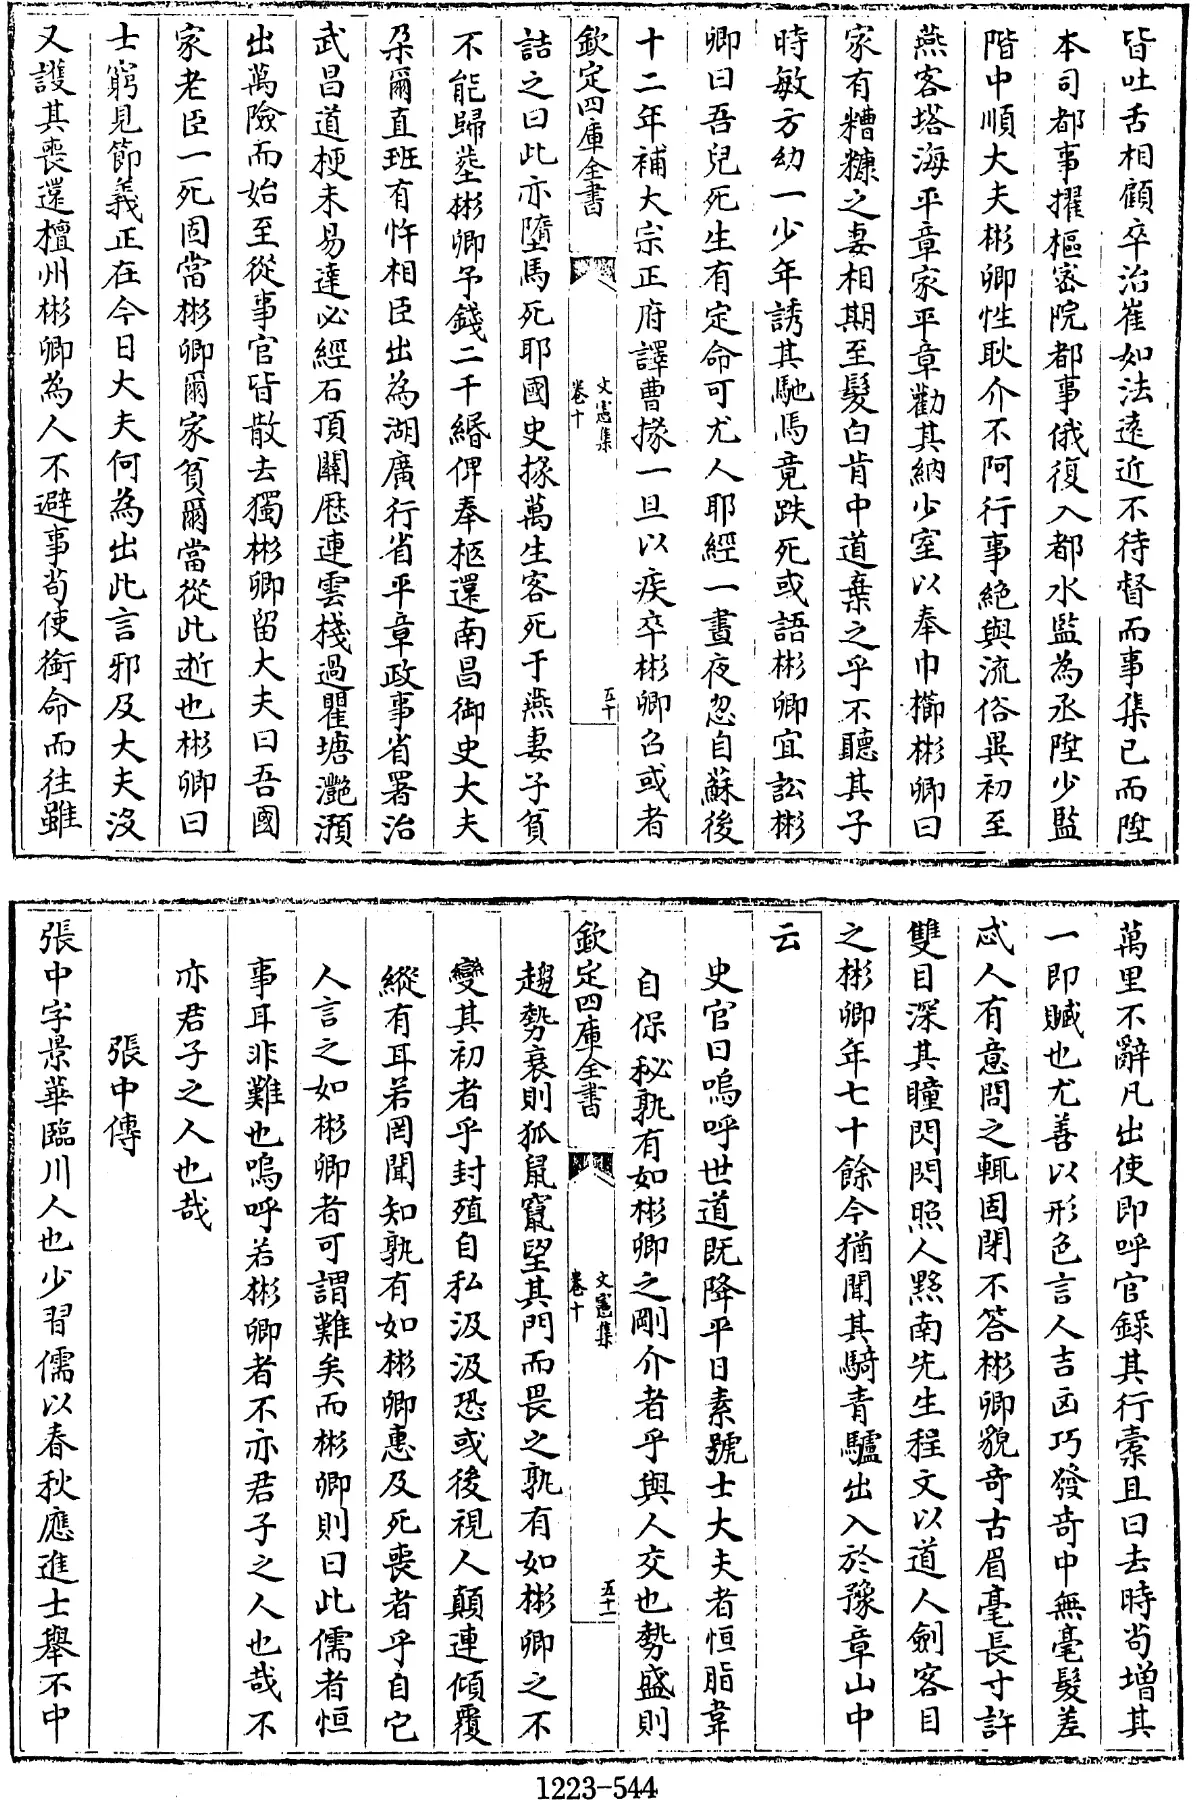 皆吐舌相顧卒治崔如法遠近不待督而事集已而陞
本司都事擢樞密院都事俄復入都水監為丞陞少監
階中順大夫彬卿性耿介不阿行事絶與流俗異初至
燕客塔海平章家平章勸其納少室以奉巾櫛彬卿曰
家有糟糠之妻相期至髮白肯中道棄之乎不聽其子
時敏方幼一少年誘其馳馬竟跌死或語彬卿宜訟彬
卿曰吾兒死生有定命可尤人耶經一晝夜忽自蘇後
十二年補大宗正府譯曹掾一旦以疾卒彬卿召或者
欽定四庫全書 文憲集 卷十 五十
詰之曰此亦墮馬死耶國史掾萬生客死于燕妻子貧
不能歸塟彬卿予錢二千緡俾奉柩還南昌御史大夫
朶爾直班有忤相臣出為湖廣行省平章政事省署治
武昌道梗未易達必經石頂關歴連雲棧過瞿塘灔澦
出萬險而始至從事官皆散去獨彬卿留大夫曰吾國
家老臣一死固當彬卿爾家貧爾當從此逝也彬卿曰
士窮見節義正在今日大夫何為出此言邪及大夫沒
又護其喪還檀州彬卿為人不避事茍使銜命而往雖
萬里不辭凡出使即呼官録其行橐且曰去時尚增其
一即贓也尤善以形色言人吉凶巧發竒中無毫髮差
忒人有意問之輒固閉不答彬卿貌竒古眉毫長寸許
雙目深其瞳閃閃照人黟南先生程文以道人劍客目
之彬卿年七十餘今猶聞其騎青驢出入於豫章山中
云
史官曰嗚呼世道既降平日素號士大夫者恒脂韋
自保秘孰有如彬卿之剛介者乎與人交也勢盛則
欽定四庫全書 文憲集 卷十 五十一
趨勢衰則狐鼠竄望其門而畏之孰有如彬卿之不
變其初者乎封殖自私汲汲恐或後視人顛連傾覆
縱有耳若罔聞知孰有如彬卿惠及死喪者乎自它
人言之如彬卿者可謂難矣而彬卿則曰此儒者恒
事耳非難也嗚呼若彬卿者不亦君子之人也哉不
亦君子之人也哉
張中傳
張中字景華臨川人也少習儒以春秋應進士舉不中
1223-544